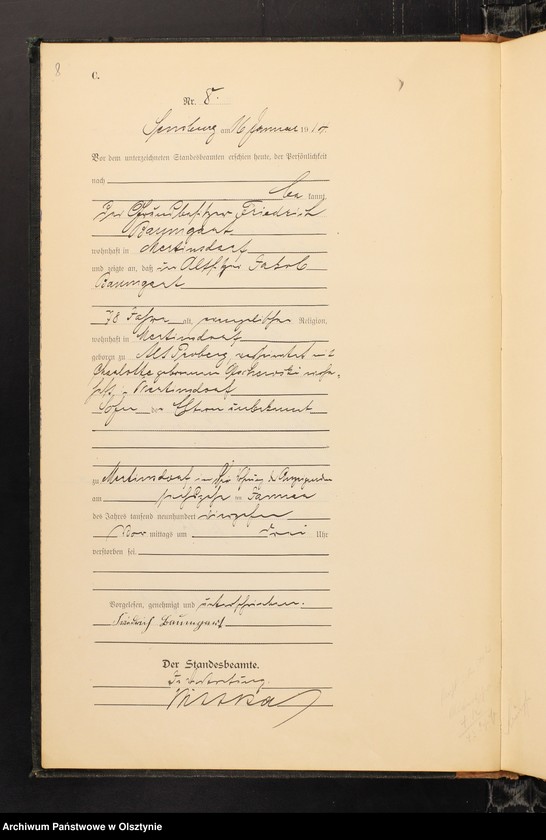 8
C.
Nr. 8.
Sensburg am 16 Januar 191
Vor dem unterzeichneten Standesbeamten erschien heute, der Persönlichkeit
nach
be kannt,
der Grundbesitzer Friedrich
Baumgart
wohnhaft in Mertinsdorf
und zeigte an, daß der Altsitzer Jakob
Baumgart
78 Jahre alt, evangelischer Religion,
wohnhaft in Mertinsdorf
geboren zu Alt Proberg verheiratet mit
Charlotte geborenen
Mertinsdorf
Sohn der Eltern unbekannt
zu Mertinsdorf in
am sechszehn ten Januar
des Jahres tausend neunhundert
Vor mittags um drei Uhr
verstorben sei.
Vorgelesen, genehmigt und unterschrieben.
Friedrich Baumgart
Der Standesbeamte.
In Vertretung.
Archiwum Państwowe w Olsztynie